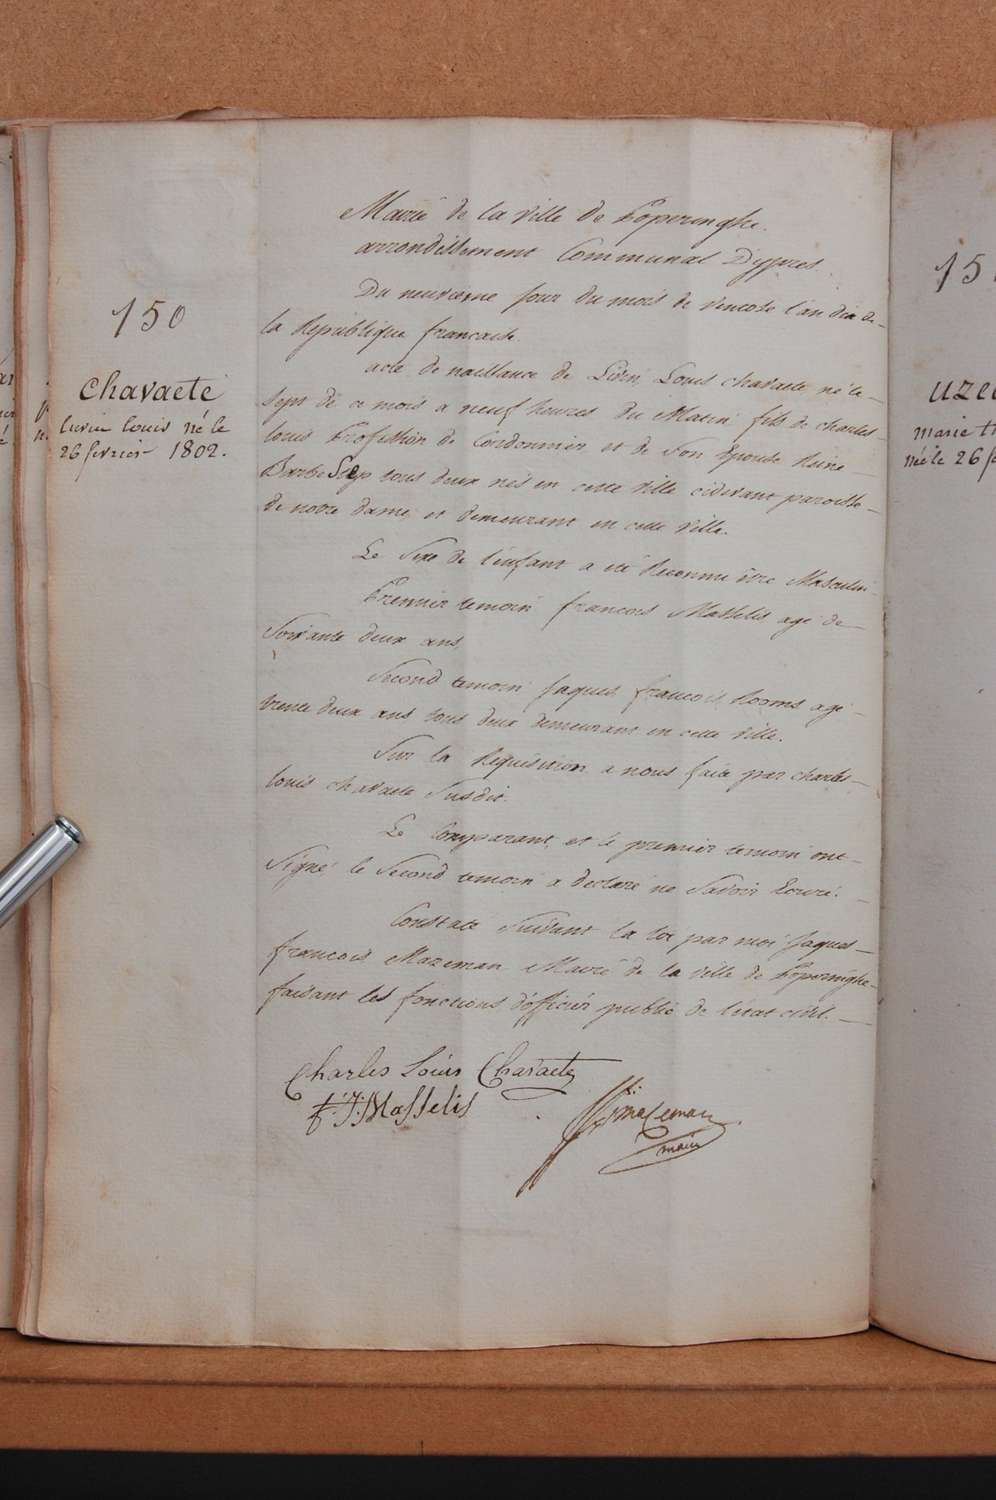 Mairie de la ville de Poperinghe.
arrondissement Communal D'ypres.
Du neuvieme jour du mois de ventose l'an dix de
la Republique francaise.
150
Chavaete
livin louis né le
26 fevrier 1802.
acte de naissance de Livin Louis chavaete né le
sept de ce mois a neuf heures du Matin fils de charles
louis Profession de Cordonnier et de son Epouse Reine
Barbe Sep tous deux nés en cette ville cidevant paroisse
de notre dame et demeurant en cette ville.
Le Sexe de l'enfant a été Reconnu être Masculin.
Premier temoin francois Masselis agé de
Soixante deux ans
Second temoin Jaques francois Rooms agé
trente deux ans tous deux demeurant en cette ville.
Sur la Requisition a nous faite par charles
louis chavaete Susdit.
Le Comparant et le premier temoin ont
Signé le Second temoin a declaré ne Savoir Ecrire.
Constaté Suivant la loi par moi Jaques
francois Mazeman Maire de la ville de Poperinghe
faisant les fonctions d'officier public de l'état civil.
Charles Louis Chavaete
F:J: Masselis
JF: mazeman
maire
15
UZE
marie
née le 26 fe